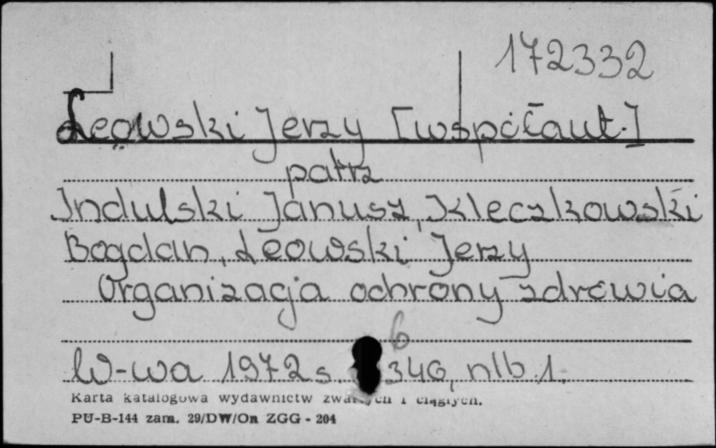 172332
Leowski Jerzy [współaut.]
patrz
Indulski Janusz, Kleczkowski
Bogdan, Leowski Jerzy
Organizacja ochrony zdrowia
6
W-wa 1972 s. 346, nlb 1.
Karta katalogowa wydawnictw zwartych i ciągłych.
PU-B-144 zam. 29/DW/On ZGG - 204